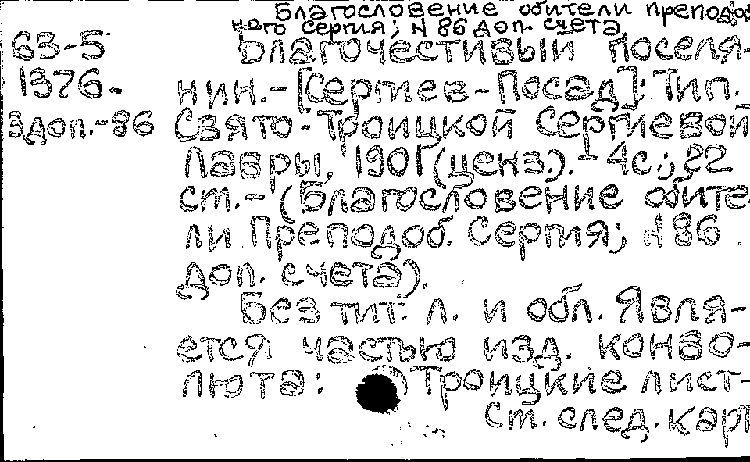 Благословение обители преподоб
ного Сергия; N 86 доп. счета
63-5 Благочестивый поселя-
1376. нин.-[Сергиев-Посад]: Тип.
3доп.-86 Свято-Троицкой Сергиевой
Лавры, 1901 (ценз.).- 4с.; 22
см.- (Благословение обите-
ли Преподоб. Сергия; N 86
доп. счета).
Без тит. л. и обл. Явля-
ется частью изд. конво-
люта: Троицкие лист-
См. след. карт